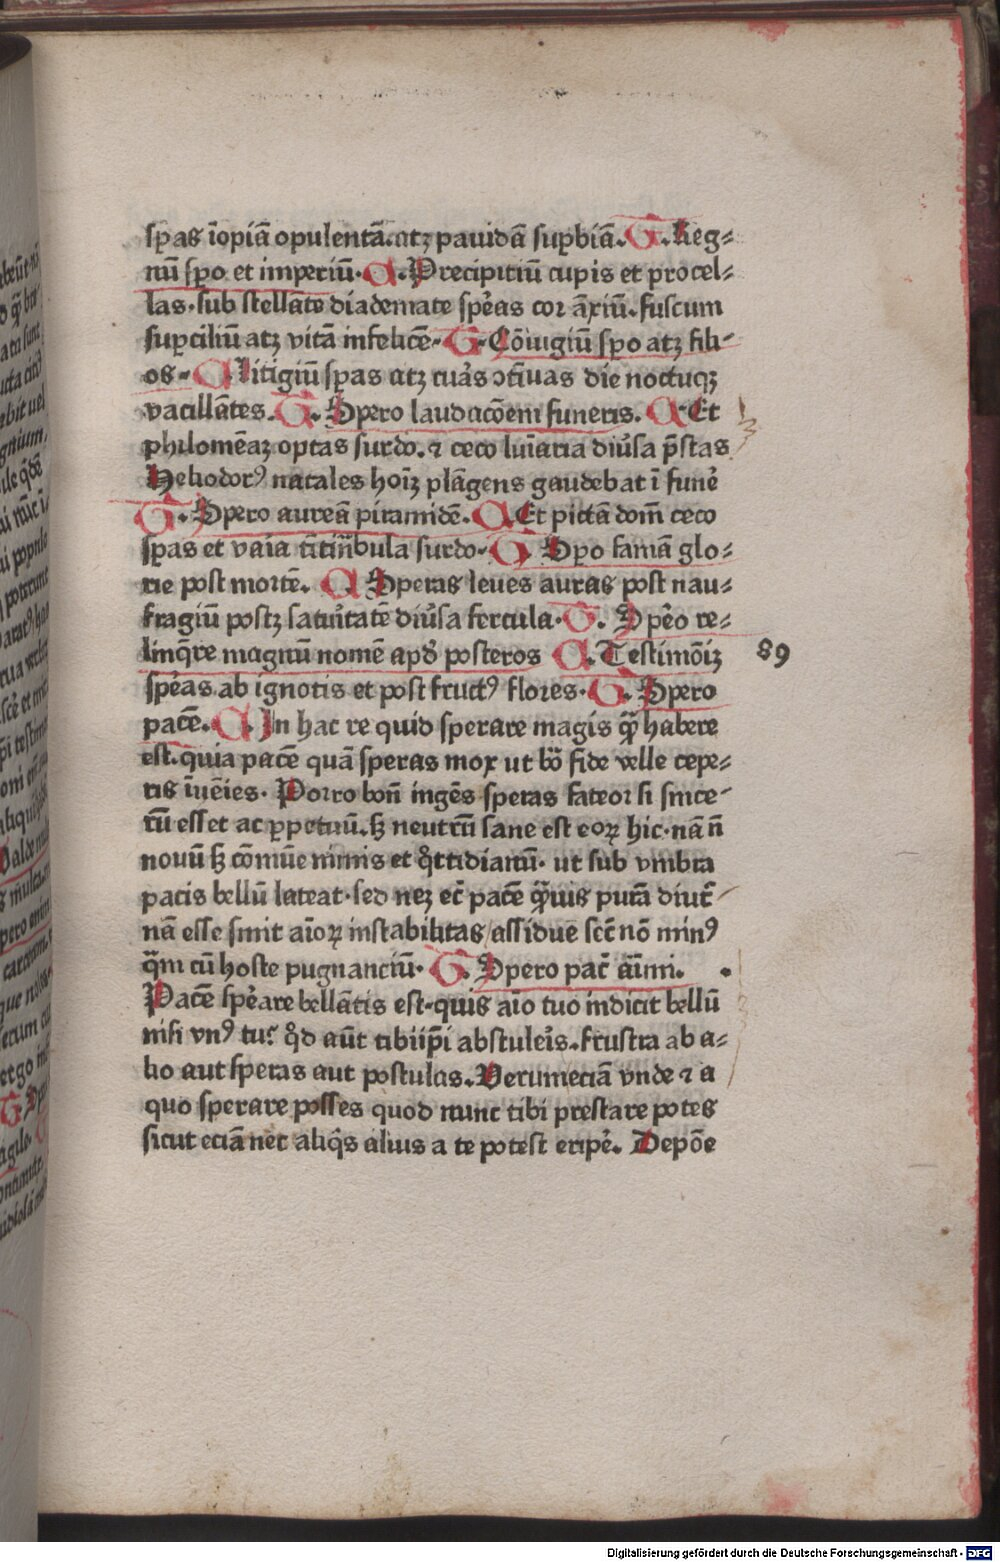 sꝑas īopiā opulentā. atqꝫ pauidā suꝑbiā. G. Reg⸗
nū sꝑo et imperiū. A. Precipitiū cupis et procel⸗
las. sub stellato diademate spe̛as cor āxiū. fuscum
suꝑciliū atqꝫ vitā infelicē. G. Cōiugiū sꝑo atqꝫ fili⸗
os. A Litigiū sꝑas atqꝫ curas ꝯtinuas die noctuqꝫ
vacillātes. G. Spero laudacōem funeris. A. Et
philomēaꝫ optas surdo. ⁊ ceco luīaria diưsa p̄stas
Heliodorꝰ natales hoīꝫ plāgens gaudebat ī fune̛
G. Spero aureā piramidē. A. Et pictā dom̄ ceco
sꝑas et vaia tītīn̄bula surdo. G. Sꝑo famā glo⸗
rie post mortē. A Speras leues auras post nau⸗
fragiū postqꝫ saturitatē diưsa fercula. G. Spe̛o re⸗
linq̄re magnū nomē apd̛ posteros A. Testimōiꝫ
spe̛as ab ignotis et post fructꝰ flores. G. Spero
pacē. A. In hac re quid sperare magis q̄ꝫ habere
est. quia pacē quā speras mox ut bo̅ fide velle cepe⸗
ris īuēies. Porro bon̄ ingēs speras fateor si since⸗
rū esset ac ꝑpetuū. sꝫ neutrū sane est eoꝝ hic. nā n̄
nouū sꝫ cōmūe nimis et q̊ttidianū. ut sub vmbra
pacis bellū lateat. sed neqꝫ ec̄ pacē q̄ꝫuis putā diut̄
nā esse sinit aīoꝝ instabilitas / assidue sec̄ nō minꝰ
q̄m cū hoste pugnanciū. G. Spero pac̄ aīmi.
Pacē spe̛are bellātis est. quis aīo tuo indicit bellū
nisi vnꝰ tu? q̊d aūt tibiip̄i abstule̛is. frustra ab a⸗
lio aut speras aut postulas. Verumeciā vnde ⁊ a
quo sperare posses quod nunc tibi prestare potes
sicut eciā nec aliq̄s alius a te potest eripe̛. Depōe
89
Digitalisierung gefördert durch die Deutsche Forschungsgemeinschaft - DFG